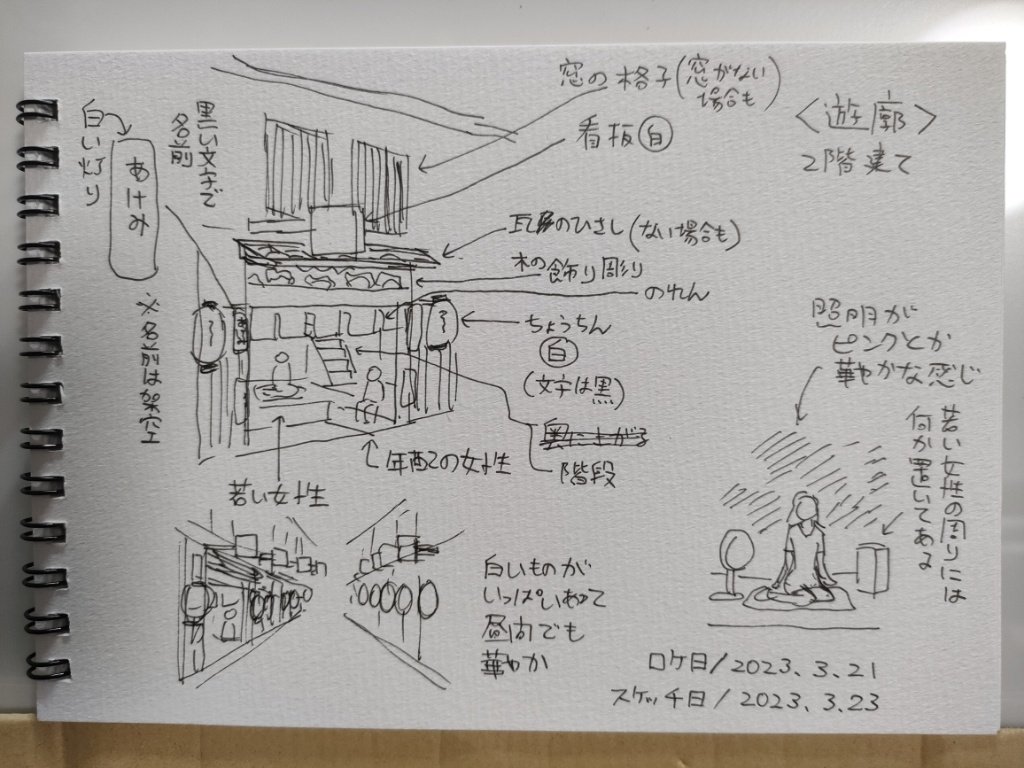 <遊廓>
2階建て
窓の格子(窓がない
場合も)
看板(白)
瓦のひさし(ない場合も)
木の飾り彫り
のれん
ちょうちん
白
(文字は黒)
階段
年配の女性
若い女性
白い灯り
あけみ
黒い文字で
名前
※名前は架空
照明が
ピンクとか
華やかな感じ
若い女性の周りには
何か置いてある
白いものが
いっぱいあって
昼間でも
華やか
ロケ日/2023.3.21
スケッチ日/2023.3.23